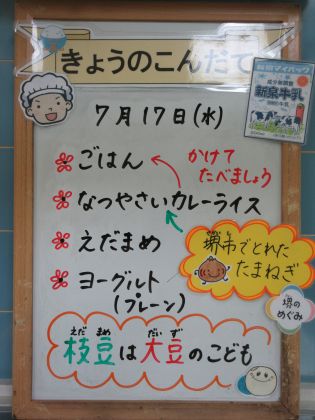 きょうのこんだて
7月17日(水)
ごはん
かけて
たべましょう
なつやさいカレーライス
えだまめ
堺市でとれた
たまねぎ
ヨーグルト
(プレーン)
堺の
めぐみ
えだ まめ だい ず
枝豆は大豆のこども
新泉牛乳